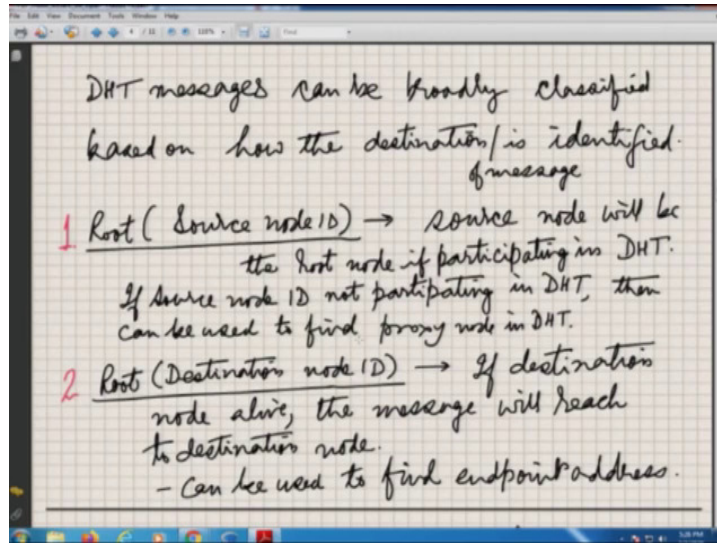 File Edit View Document Tools Window Help
4 / 11 115% Find
DHT messages can be broadly classified
based on how the destination/is identified.
of message
1 Root (Source node ID) → source node will be
the root node if participating in DHT.
If source node ID not partipating in DHT, then
can be used to find proxy node in DHT.
2 Root (Destination node ID) → If destination
node alive, the message will reach
to destination node.
- Can be used to find endpoint address.
5:28 PM